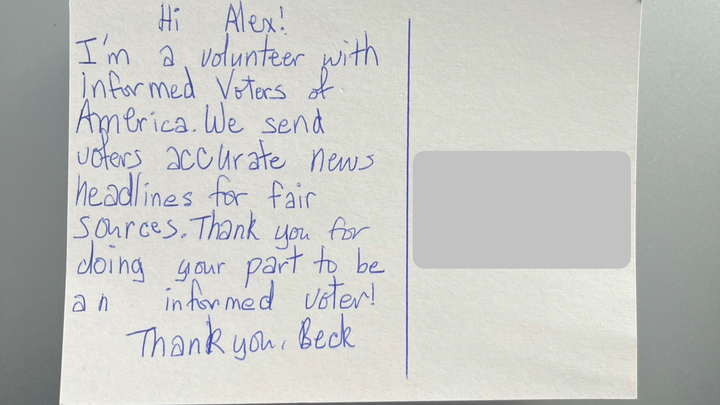 Hi Alex!
I'm a volunteer with
Informed Voters of
America. We send
voters accurate news
headlines for fair
sources. Thank you for
doing your part to be
an informed voter!
Thank you, Beck